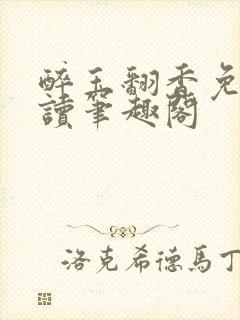 醉玉翻香免
讀筆趣閣
洛克希德馬丁